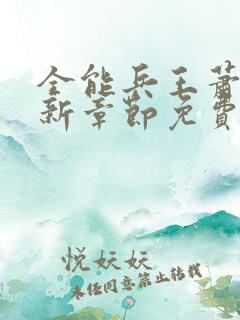 全能兵王萧
新章节免费
悦妖妖
未经同意禁止转载